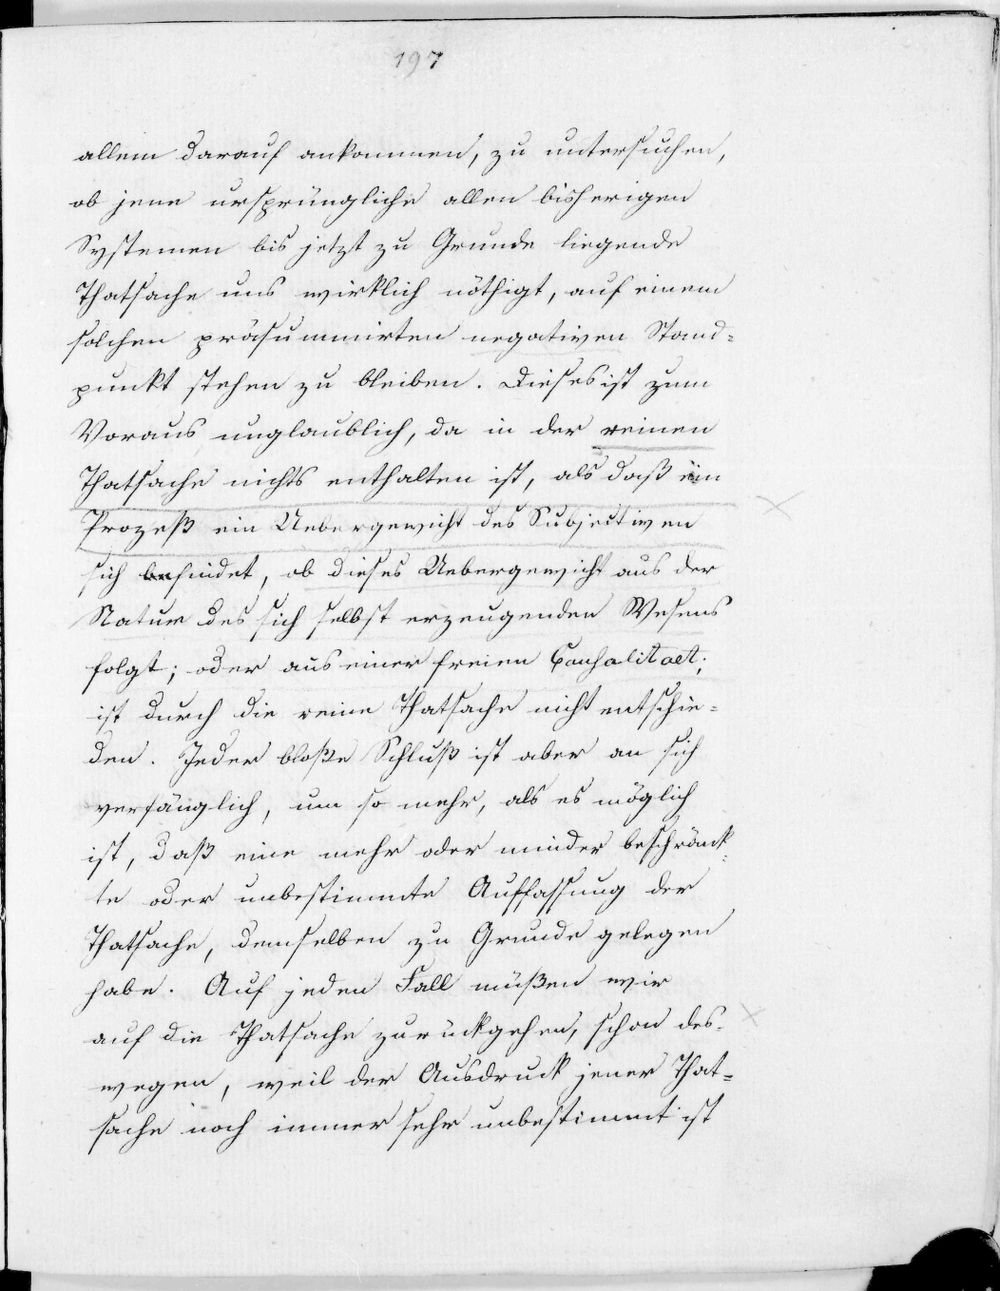 197
allein darauf ankommen, zu untersuchen,
ob jene ursprüngliche allen bisherigen
Systemen bis jetzt zu Grunde liegende
Thatsache uns wirklich nöthigt, auf einem
solchen präsummirten negativen Stand-
punkt stehen zu bleiben. Dieses ist zum
Voraus unglaublich, da in der reinen
Thatsache nichts enthalten ist, als daß im
Prozeß ein Uebergewicht des Subjectiven
sich befindet, ob dieses Uebergewicht aus der
Natur des sich selbst erzeugenden Wesens
folgt; oder aus einer freien Causalitaet;
ist durch die reine Thatsache nicht entschie-
den. Jeder bloße Schluß ist aber an sich
verfänglich, um so mehr, als es möglich
ist, daß eine mehr oder minder beschränk-
te oder unbestimmte Auffassung der
Thatsache, demselben zu Grunde gelegen
habe. Auf jeden Fall müßen wir
auf die Thatsache zurückgehen, schon des-
wegen, weil der Ausdruck jener That-
sache noch immer sehr unbestimmt ist